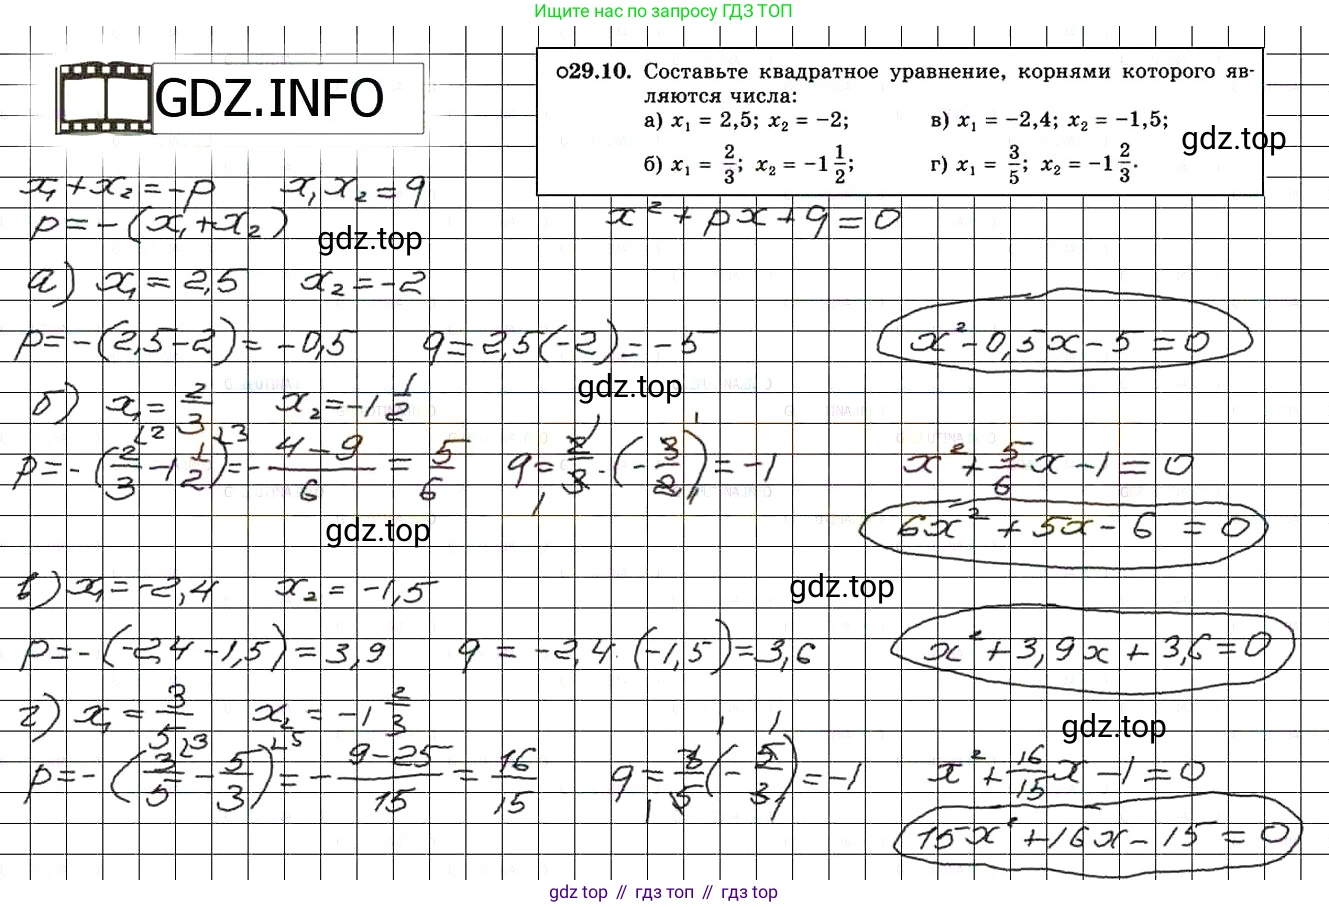 Ищите нас по запросу ГДЗ ТОП
GDZ.INFO
о29.10. Составьте квадратное уравнение, корнями которого яв-
ляются числа:
а) x₁ = 2,5; x₂ = −2; в) x₁ = −2,4; x₂ = −1,5;
gdz.top
б) x₁ = 2/3; x₂ = −1 1/2; г) x₁ = 3/5; x₂ = −1 2/3.
x₁ + x₂ = −p x₁ x₂ = q
p = −(x₁ + x₂) x² + px + q = 0
gdz.top
а) x₁ = 2,5 x₂ = −2
p = −(2,5 − 2) = −0,5 q = 2,5(−2) = −5 x² − 0,5x − 5 = 0
gdz.top
б) x₁ = 2/3 x₂ = −1 1/2
p = −(2/3 − 1 1/2) = −(4 − 9)/6 = 5/6 q = 2/3 · (−3/2) = −1 x² + 5/6 x − 1 = 0
gdz.top 6x² + 5x − 6 = 0
в) x₁ = −2,4 x₂ = −1,5 gdz.top
p = −(−2,4 − 1,5) = 3,9 q = −2,4 · (−1,5) = 3,6 x² + 3,9x + 3,6 = 0
г) x₁ = 3/5 x₂ = −1 2/3
gdz.top
p = −(3/5 − 5/3) = −(9 − 25)/15 = 16/15 q = 3/5 (−5/3) = −1 x² + 16/15 x − 1 = 0
15x² + 16x − 15 = 0
gdz top // гдз топ // гдз top